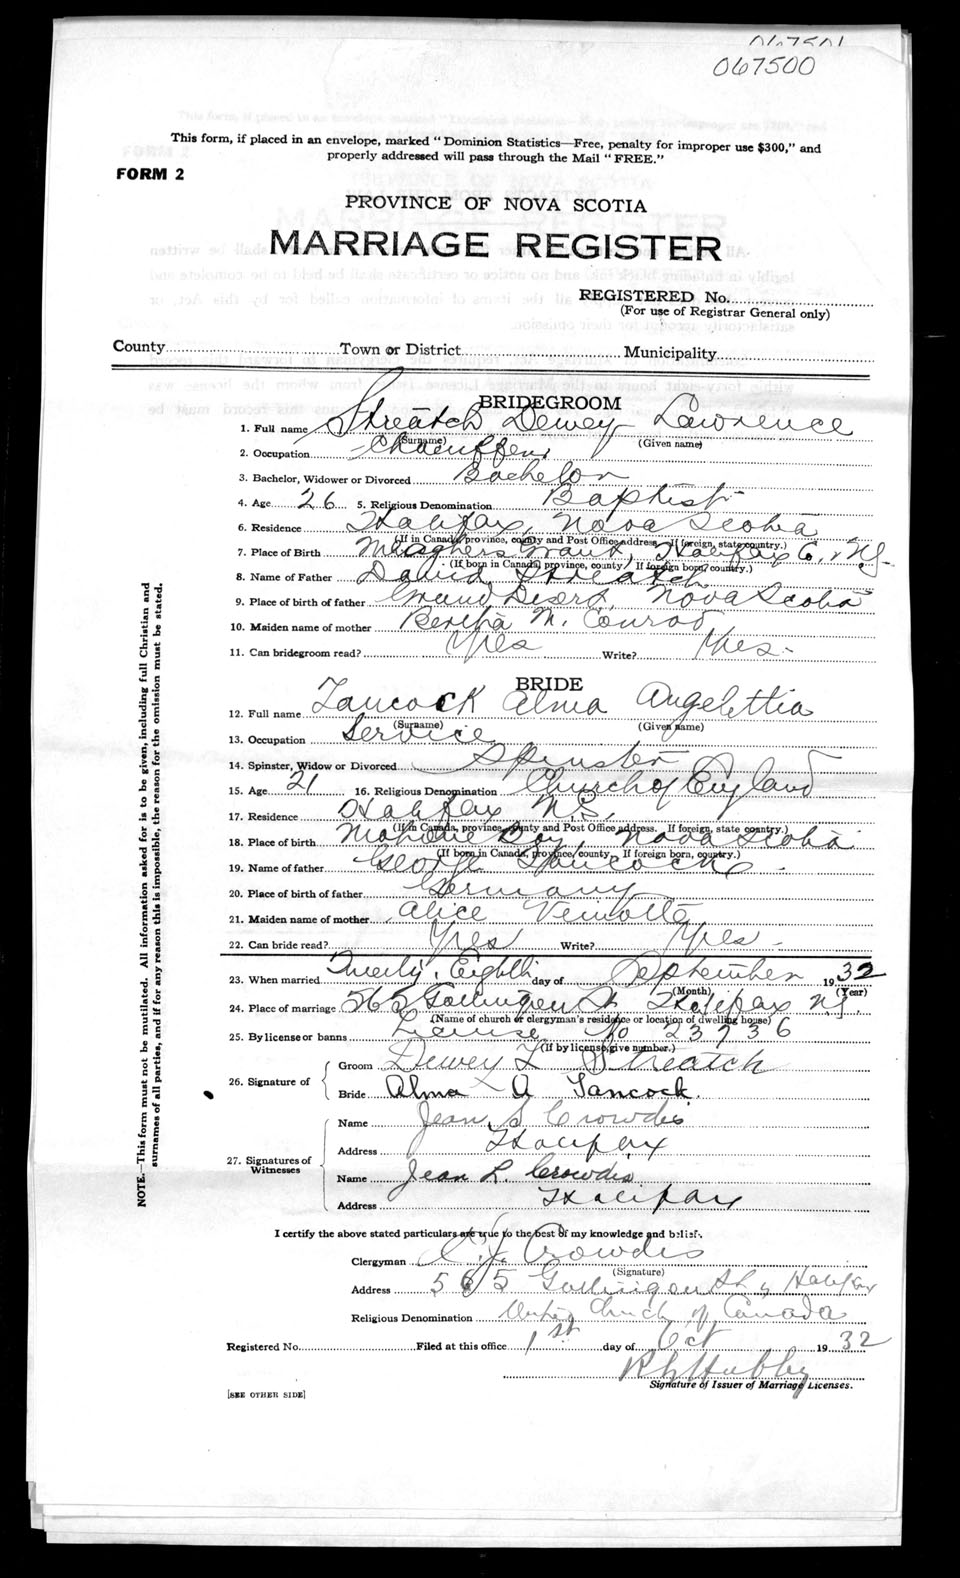 067501
067500
This form, if placed in an envelope, marked "Dominion Statistics—Free, penalty for improper use $300," and
properly addressed will pass through the Mail "FREE."
FORM 2
PROVINCE OF NOVA SCOTIA
MARRIAGE REGISTER
REGISTERED No.
(For use of Registrar General only)
County Town or District Municipality
BRIDEGROOM
1. Full name Streatch Dewey Lawrence
(Surname) (Given name)
2. Occupation Chauffeur
3. Bachelor, Widower or Divorced Bachelor
4. Age 26 5. Religious Denomination Baptist
6. Residence Halifax, Nova Scotia
(If in Canada, province, county and Post Office address. If foreign, state country.)
7. Place of Birth Meaghers Grant, Halifax Co., N.S.
(If born in Canada, province, county. If foreign born, country.)
8. Name of Father David Streatch
9. Place of birth of father Grand Desert, Nova Scotia
10. Maiden name of mother Bertha M. Conrad
11. Can bridegroom read? Yes Write? Yes.
BRIDE
12. Full name Tancock Alma Angelettia
(Surname) (Given name)
13. Occupation Service
14. Spinster, Widow or Divorced Spinster
15. Age 21 16. Religious Denomination Church of England
17. Residence Halifax N.S.
(If in Canada, province, county and Post Office address. If foreign, state country.)
18. Place of birth Mahone Bay Nova Scotia
(If born in Canada, province, county. If foreign born, country.)
19. Name of father George Tancock
20. Place of birth of father Germany
21. Maiden name of mother Alice
22. Can bride read? Yes Write? Yes.
23. When married Twenty Eighth day of September 1932
(Month) (Year)
24. Place of marriage 565 Gottingen St Halifax N.S.
(Name of church or clergyman's residence or location of dwelling house)
25. By license or banns License No 23736
(If by license, give number.)
26. Signature of Groom Dewey L Streatch
Bride Alma A Tancock.
27. Signatures of Witnesses Name Jean S Crowdis
Address Halifax
Name Jean L. Crowdis
Address Halifax
I certify the above stated particulars are true to the best of my knowledge and belief.
Clergyman C. J. Crowdis
(Signature)
Address 565 Gottingen St, Halifax
Religious Denomination United Church of Canada
Registered No. Filed at this office 1st day of Oct 1932
Signature of Issuer of Marriage Licenses.
[SEE OTHER SIDE]
NOTE.—This form must not be mutilated. All information asked for is to be given, including full Christian and
surnames of all parties, and if for any reason this is impossible, the reason for the omission must be stated.